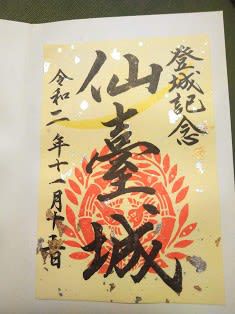 登城記念
仙臺城
令和二年十一月十五日